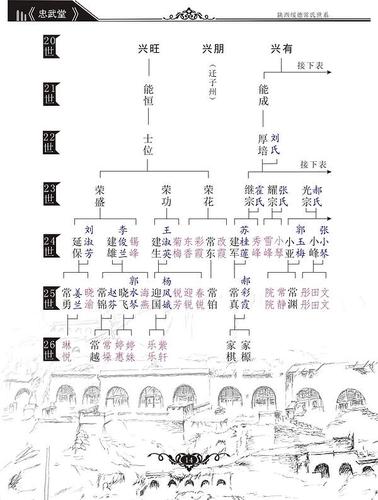 忠武堂
陕西绥德常氏世系
20世
兴旺 兴朋 兴有
(迁子州)
接下表
21世
能恒 能成
22世
士位 厚培 刘氏
接下表
23世
荣盛 荣功 荣花 继宗 霍氏 耀宗 张氏 光宗 郝氏
24世
延保 刘淑芳 建雄 李俊兰 锡峰 建生 王淑英 菊梅 东香 彩霞 常东 改霞 建军 苏桂莲 秀峰 雪峰 小琴 小亚 郭玉梅 小峰 张小琴
25世
常勇 姜兰 晓渝 常锦 赵梦 晓飞 郭水琴 海燕 迎国 杨凤娥 锐芳 迎锐 春锐 常铂 常真 郝彩霞 院院 常静 常渊 彤彤 田田 文文
26世
琳悦 常越 常垛 婷惠 婷妹 乐乐 紫轩 家棋 家源
14